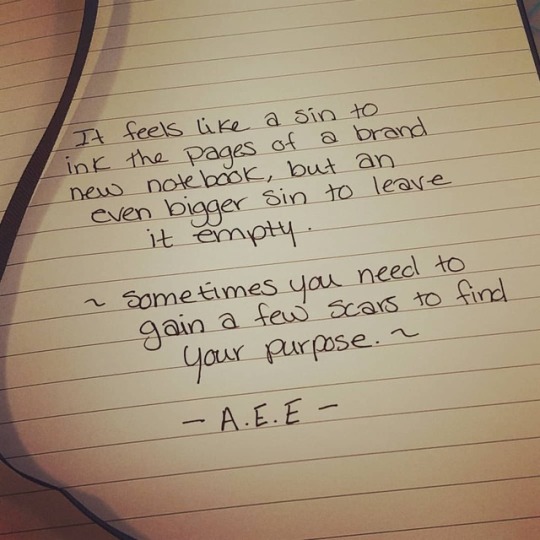 It feels like a sin to
ink the pages of a brand
new notebook, but an
even bigger sin to leave
it empty.
~ Sometimes you need to
gain a few scars to find
your purpose. ~
- A.E.E -